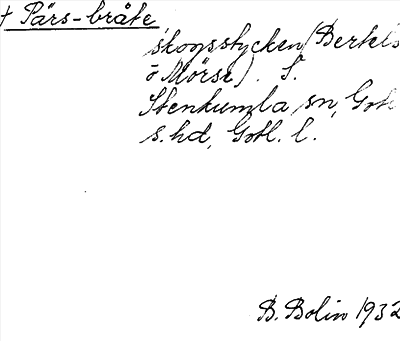 † Pärs-bråte,
skogsstycken (Bertels
o Mörse). S.
Stenkumla sn, Gotl.
s. hd, Gotl. l.
B. Bolin 1932